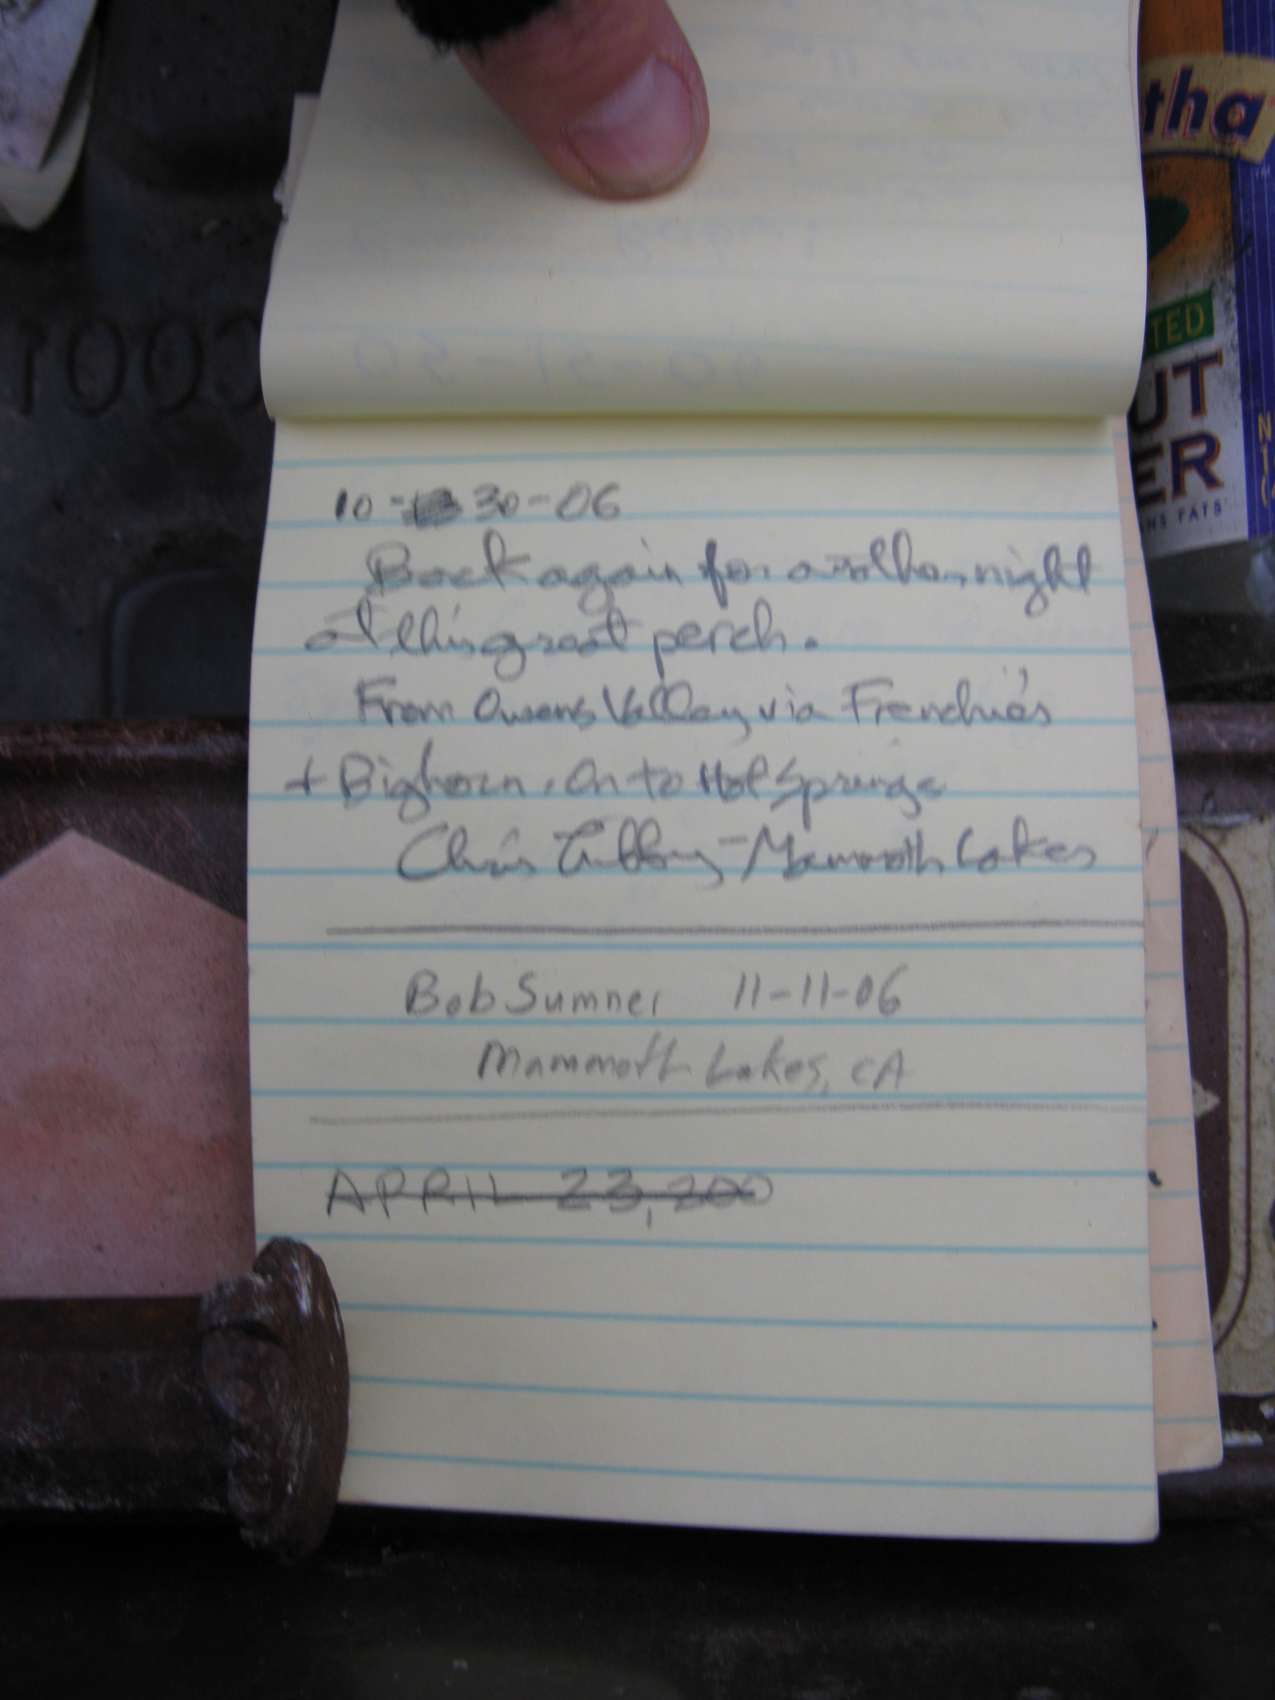 10-30-06
Back again for another night
at this great perch.
From Owens Valley via Frenchie's
+ Bighorn. On to Hot Springs
Chris - Mammoth Lakes
Bob Sumner 11-11-06
Mammoth Lakes, CA
APRIL 23, 200
tha
TED
UT
ER